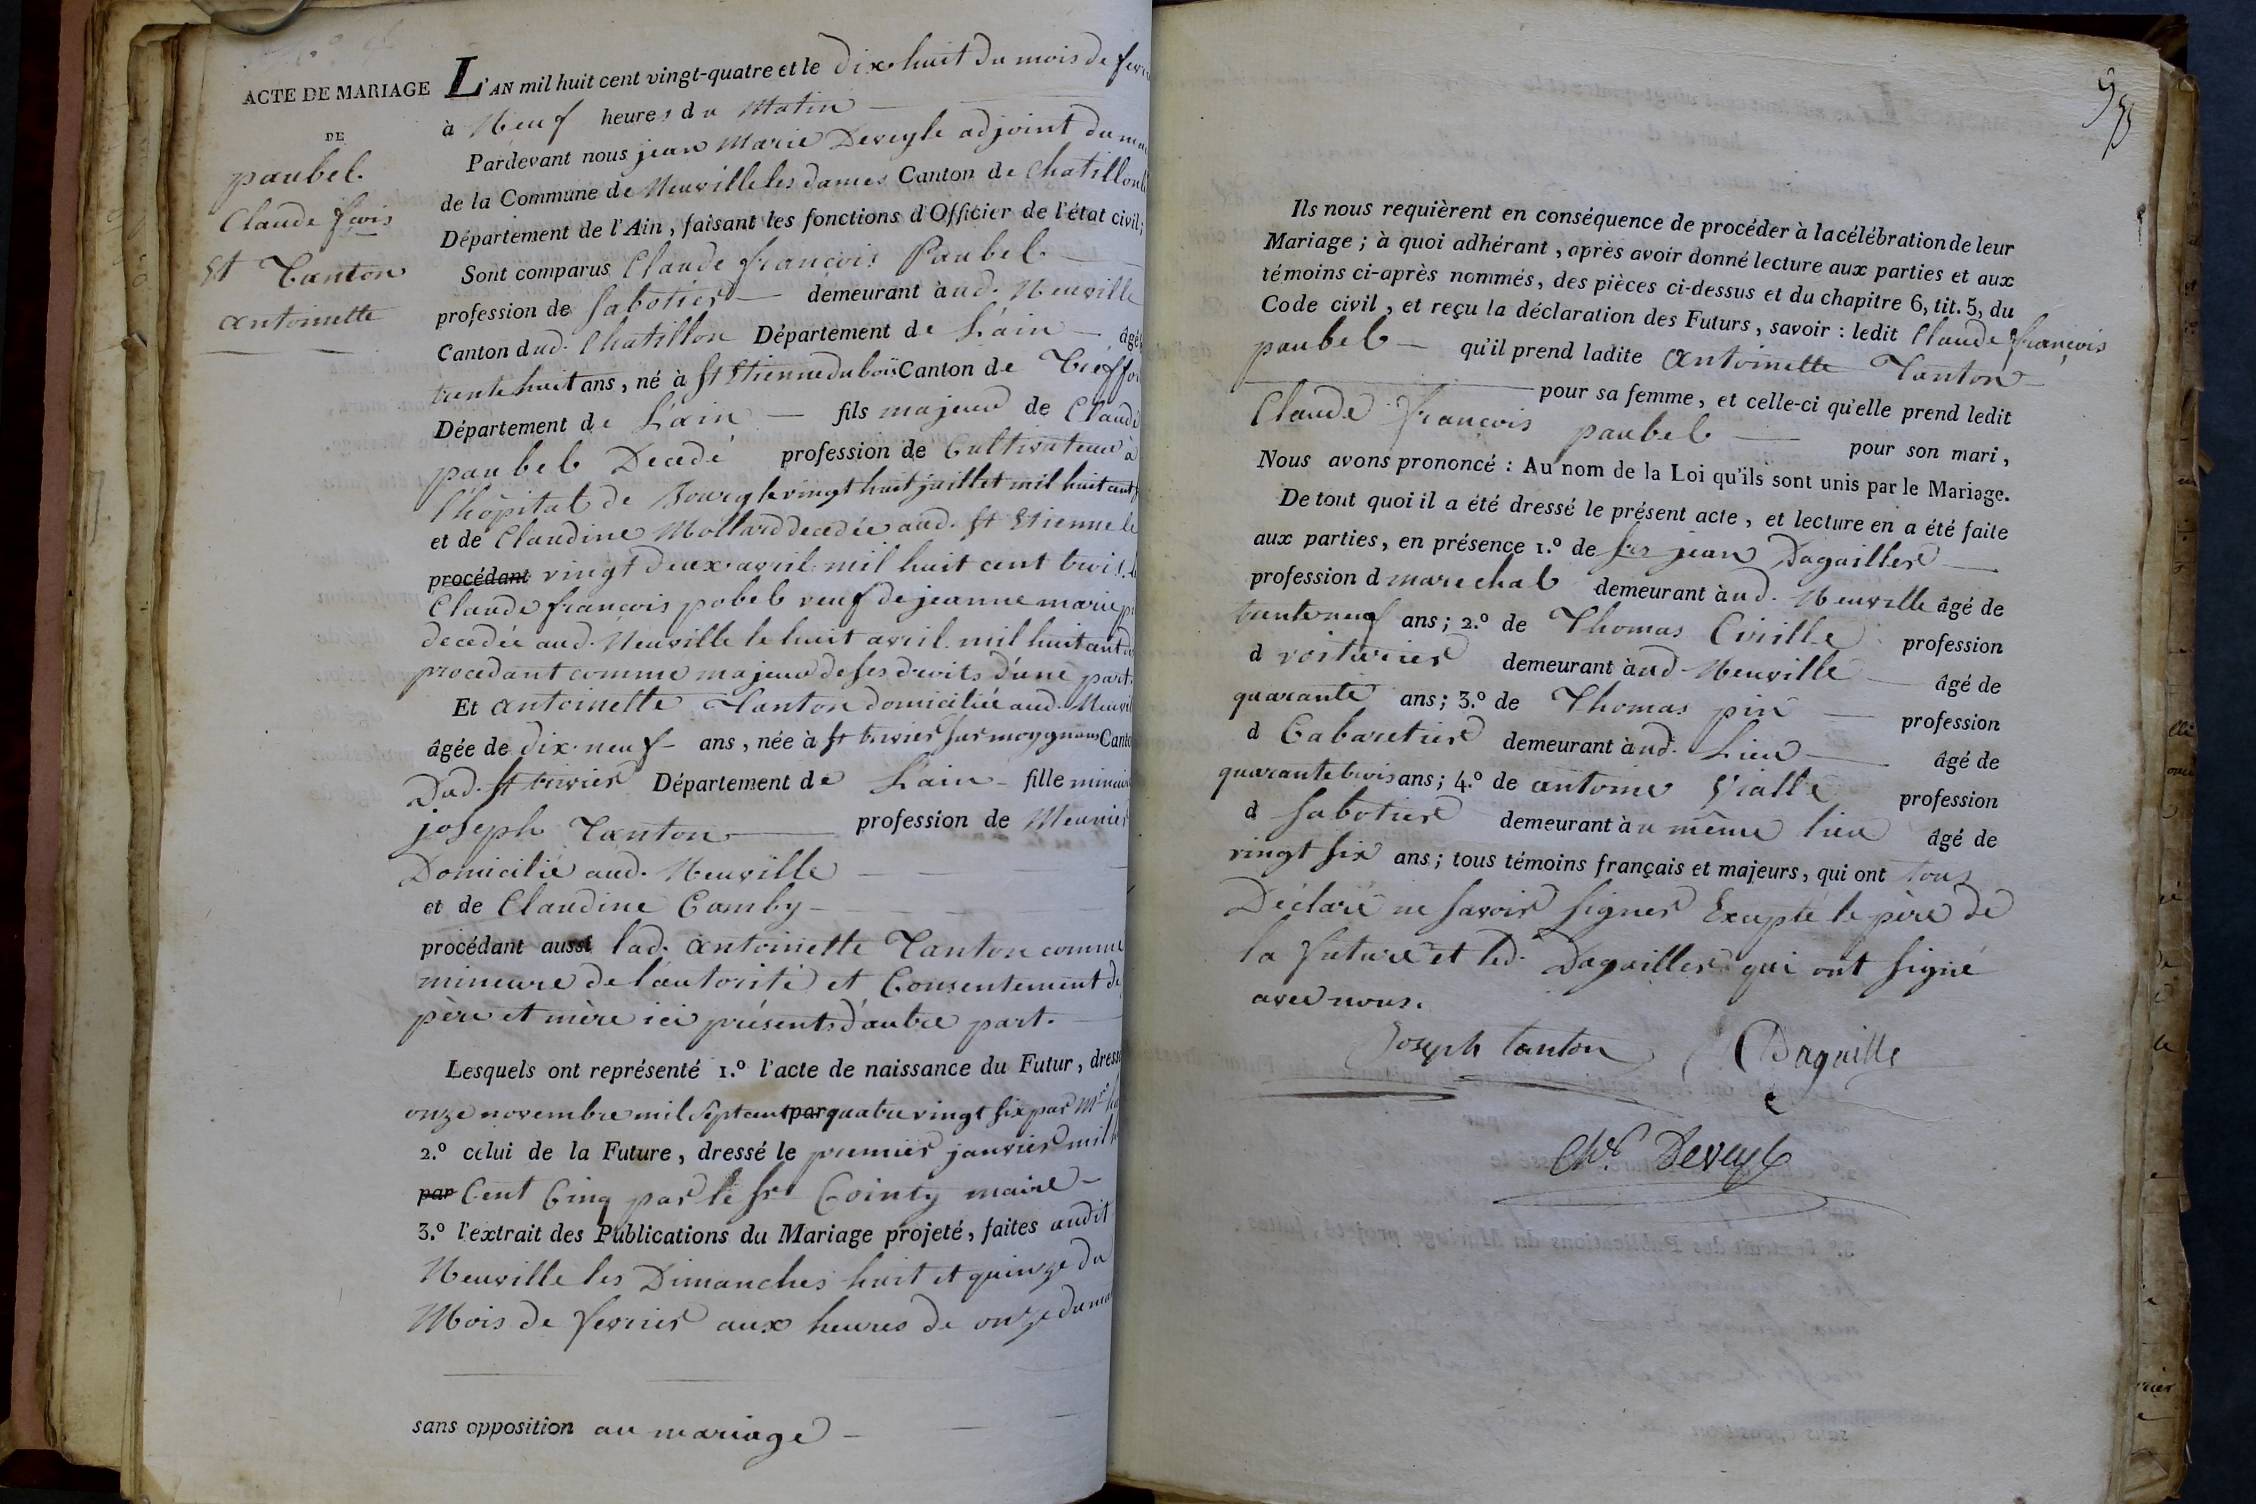 ACTE DE MARIAGE
DE
paubel.
Claude fcois
et Tanton
antoinette
L'AN mil huit cent vingt-quatre et le dix huit du mois de
à Neuf heures du Matin
Pardevant nous jean Marie Deveyle adjoint du
de la Commune de Neuville les dames Canton de Chatillon
Département de l'Ain, faisant les fonctions d'Officier de l'état civil;
Sont comparus Claude francois Paubel
profession de Sabotier demeurant aud. Neuville
Canton dud. Chatillon Département de L'ain âgé
trente huit ans, né à St Etienne du bois Canton de
Département de L'ain fils majeur de Claude
paubel Decedé profession de Cultivateur à
l'hôpital de Bourg le vingt huit juillet mil huit cent
et de Claudine Mollard decedée aud. St Etienne le
procédant vingt deux avril mil huit cent trois
Claude francois pobel veuf de jeanne marie
decedée aud. Neuville le huit avril mil huit cent
procedant comme majeur de ses droits d'une part.
Et antoinette Tanton domiciliée aud.
âgée de dix neuf ans, née à St trivier sur moygnans
Dud. St trivier Département de L'ain fille
joseph Tanton profession de Meunier
Domicilié aud. Neuville
et de Claudine Camby
procédant aussi lad. antoinette Tanton comme
mineure de l'autorité et Consentement de
père et mère ici présents d'autre part.
Lesquels ont représenté 1.º l'acte de naissance du Futur,
onze novembre mil sept cent par quatre vingt six par Mr
2.º celui de la Future, dressé le premier janvier mil
par Cent Cinq par le Sr Cointy maire
3.º l'extrait des Publications du Mariage projeté, faites audit
Neuville les Dimanches huit et quinze du
Mois de fevrier aux heures de onze du
sans opposition au mariage
Ils nous requièrent en conséquence de procéder à la célébration de leur
Mariage; à quoi adhérant, après avoir donné lecture aux parties et aux
témoins ci-après nommés, des pièces ci-dessus et du chapitre 6, tit. 5, du
Code civil, et reçu la déclaration des Futurs, savoir : ledit Claude françois
paubel qu'il prend ladite Antoinette Tanton
pour sa femme, et celle-ci qu'elle prend ledit
Claude françois paubel pour son mari,
Nous avons prononcé : Au nom de la Loi qu'ils sont unis par le Mariage.
De tout quoi il a été dressé le présent acte, et lecture en a été faite
aux parties, en présence 1.º de jean Dagailler
profession d marechal demeurant aud. Neuville âgé de
trente neuf ans; 2.º de Thomas profession
d voiturier demeurant aud Neuville âgé de
quarante ans; 3.º de Thomas pin profession
d Cabaretier demeurant aud. Lieu âgé de
quarante trois ans; 4.º de antoine Vialle profession
d Sabotier demeurant au même lieu âgé de
vingt six ans; tous témoins français et majeurs, qui ont tous
Déclaré ne Savoir Signer Excepté le père de
la future et led. Dagailler qui ont signé
avec nous.
Joseph tanton Dagaille
Deveyle